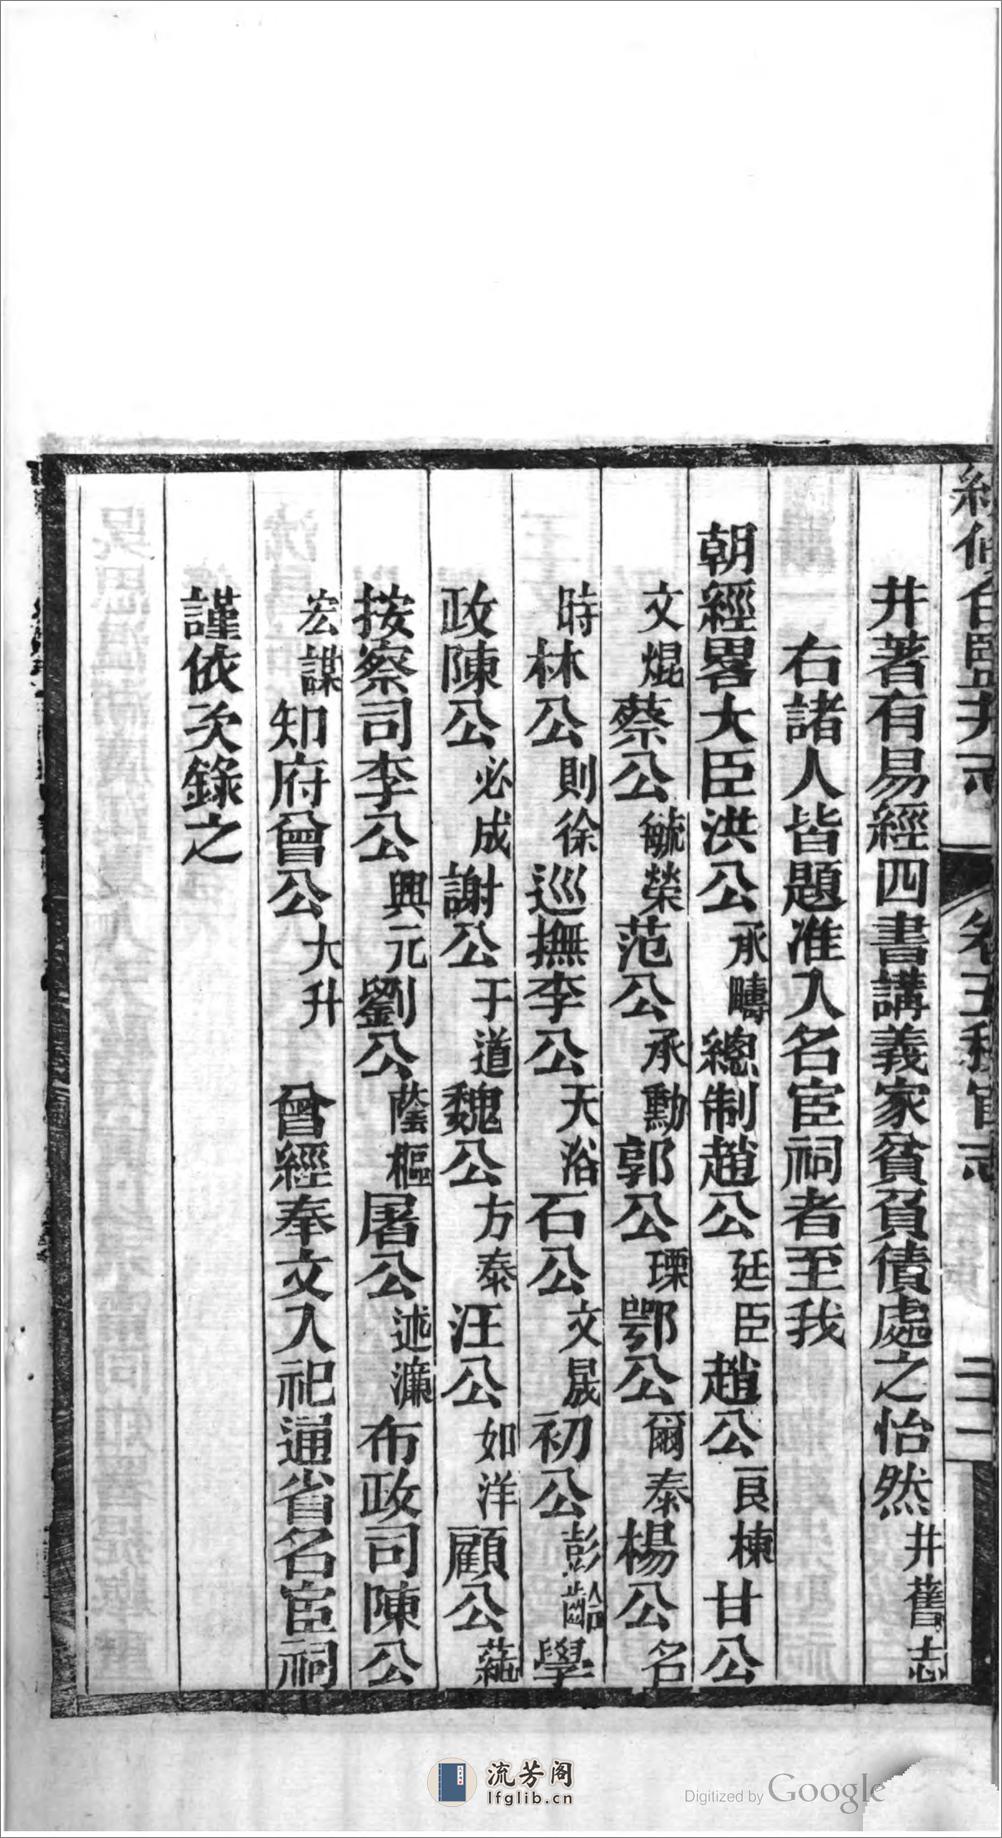 井著有易經四書講義家貧負債處之怡然井舊志
右諸人皆題准入名宦祠者至我
朝經畧大臣洪公承疇總制趙公廷臣趙公良棟甘公
文焜蔡公毓榮范公承勳郭公瑮鄂公爾泰楊公名
時林公則徐巡撫李公天浴石公文晟初公彭齡學
政陳公必成謝公于道魏公方泰汪公如洋顧公蒓
按察司李公興元劉公蔭樞屠公述濂布政司陳公
宏謀知府曾公大升 曾經奉文入祀通省名宦祠
謹依次錄之
井志
秩官志
流芳阁
lfglib.cn
Digitized by Google